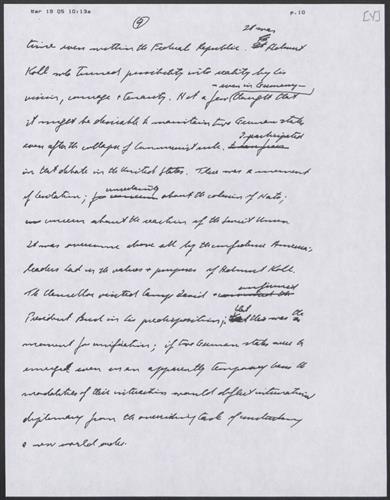 Mar 19 05 10:13a p.10
9 [V]
It was
time even within the Federal Republic. Helmut
Kohl who turned possibility into reality by his
vision, courage + tenacity. Not a few – even in Germany – thought that
it might be desirable to maintain two German states
even after the collapse of Communist rule. I participated
in that debate in the United States. There was a moment
of hesitation; uncertainty about the cohesion of Nato;
concern about the reaction of the Soviet Union
It was overcome above all by the confidence America's
leaders had in the values + purposes of Helmut Kohl.
The Chancellor visited Camp David + confirmed
President Bush in his predisposition; that this was the
moment for unification; if two German states were to
emerge even on an apparently temporary basis the
modalities of their interaction would deflect international
diplomacy from the overriding task of constructing
a new world order.